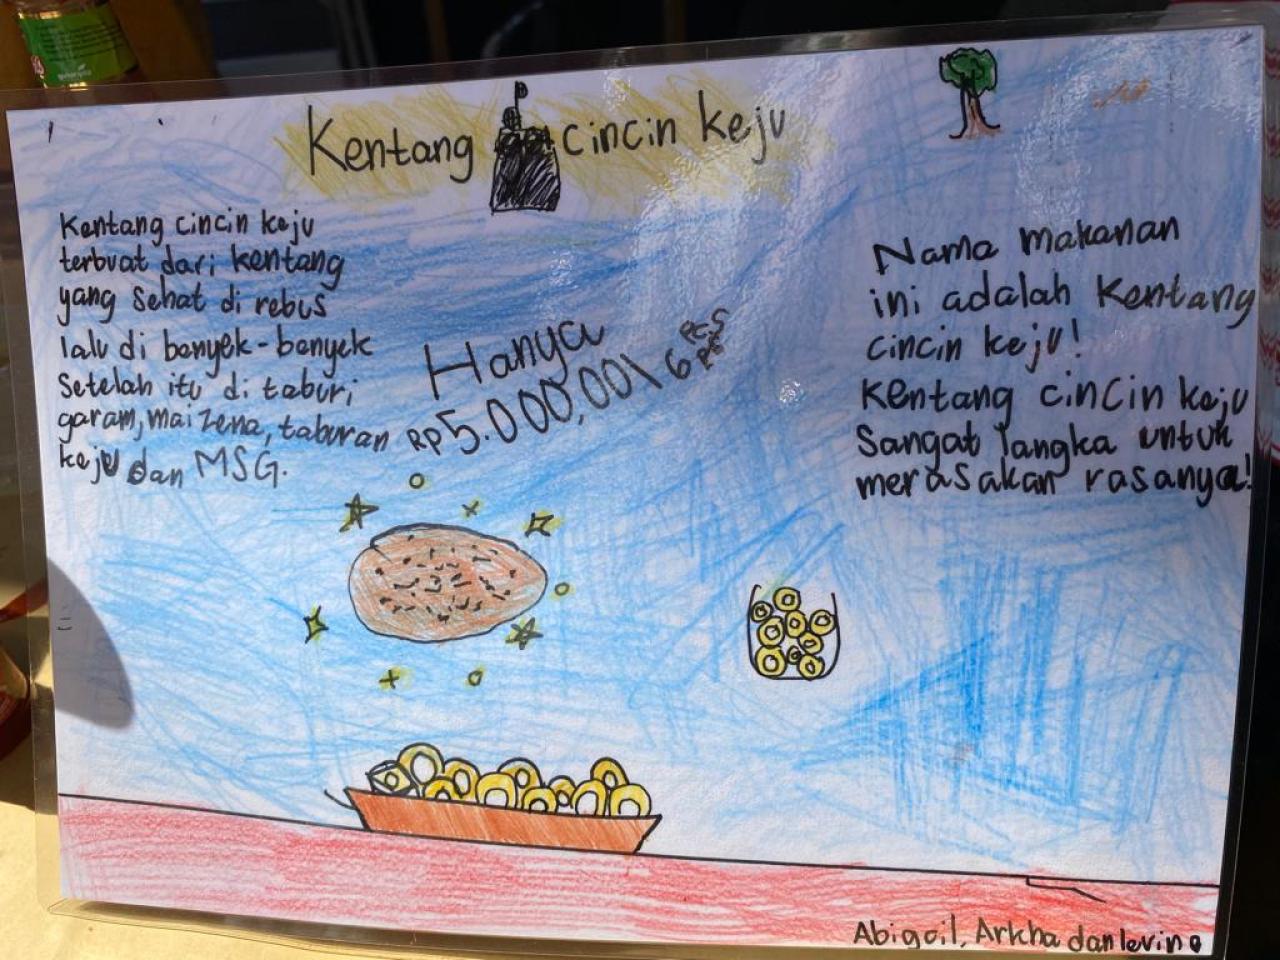 Kentang cincin keju
Kentang cincin keju
terbuat dari kentang
yang sehat di rebus
lalu di benyek-benyek
Setelah itu di taburi
garam, maizena, taburan
keju dan MSG.
Hanya
RP5.000,00\ 6 PCS
Nama makanan
ini adalah Kentang
cincin keju!
Kentang cincin keju
Sangat langka untuk
merasakan rasanya!
Abigail, Arkha dan levino